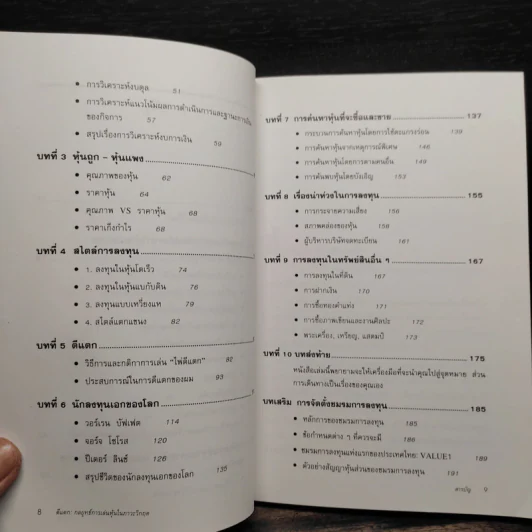 • การวิเคราะห์งบดุล 51
• การวิเคราะห์แนวโน้มผลการดำเนินการและฐานะการเงิน
ของกิจการ 57
• สรุปเรื่องการวิเคราะห์งบการเงิน 59
บทที่ 3 หุ้นถูก - หุ้นแพง
• คุณภาพของหุ้น 62
• ราคาหุ้น 64
• คุณภาพ VS ราคาหุ้น 68
• ราคาเก็งกำไร 68
บทที่ 4 สไตล์การลงทุน
• 1. ลงทุนในหุ้นโตเร็ว 74
• 2. ลงทุนในหุ้นแบกับดิน 76
• 3. ลงทุนแบบเหวี่ยงแห 79
• 4. สไตล์แตกแขนง 82
บทที่ 5 ตีแตก
• วิธีการและกติกาการเล่น "ไพ่ตีแตก" 82
• ประสบการณ์ในการตีแตกของผม 93
บทที่ 6 นักลงทุนเอกของโลก
• วอร์เรน บัฟเฟต 114
• จอร์จ โซโรส 120
• ปีเตอร์ ลินซ์ 126
• สรุปชีวิตของนักลงทุนเอกของโลก 135
8 ตีแตก: กลยุทธ์การเล่นหุ้นในภาวะวิกฤต
บทที่ 7 การค้นหาหุ้นที่จะซื้อและขาย 137
• กระบวนการค้นหาหุ้นโดยการใช้ตะแกรงร่อน 139
• การค้นหาหุ้นจากเหตุการณ์พิเศษ 146
• การค้นหาหุ้นโดยการตามคนอื่น 149
• การค้นพบหุ้นโดยบังเอิญ 153
บทที่ 8 เรื่องน่าห่วงในการลงทุน 155
• การกระจายความเสี่ยง 156
• สภาพคล่องของหุ้น 158
• ผู้บริหารบริษัทจดทะเบียน 161
บทที่ 9 การลงทุนในทรัพย์สินอื่น ๆ 167
• การลงทุนในที่ดิน 167
• การฝากเงิน 170
• การซื้อทองคำแท่ง 171
• การซื้อภาพเขียนและงานศิลปะ 172
• พระเครื่อง, เหรียญ, แสตมป์ 173
บทที่ 10 บทส่งท้าย 175
หนังสือเล่มนี้พยายามจะให้เครื่องมือที่จะนำคุณไปสู่จุดหมาย ส่วน
การเดินทางเป็นเรื่องของคุณเอง
บทเสริม การจัดตั้งชมรมการลงทุน 185
• หลักการของชมรมการลงทุน 185
• ข้อกำหนดต่าง ๆ ที่ควรจะมี 186
• ชมรมการลงทุนแห่งแรกของประเทศไทย: VALUE1 189
• ตัวอย่างสัญญาหุ้นส่วนของชมรมการลงทุน 191
สารบัญ 9